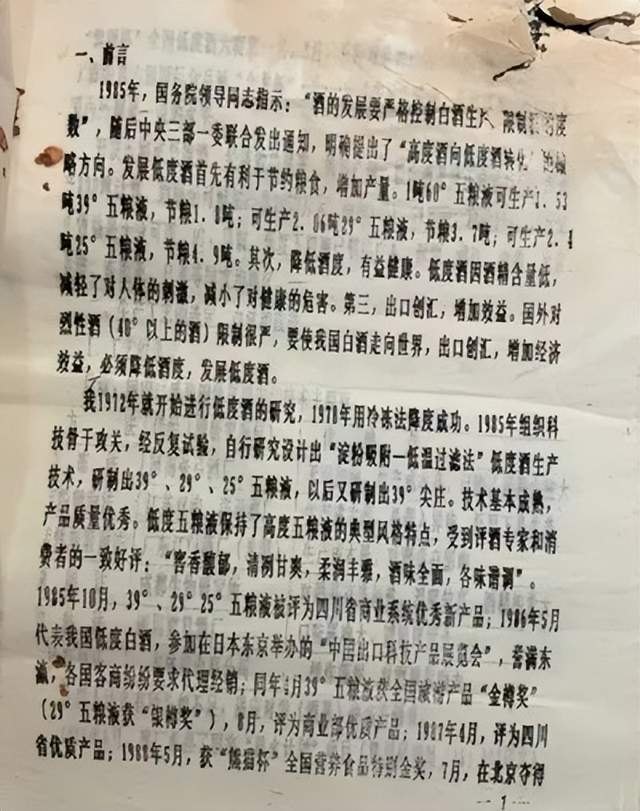 一、前言
1985年，国务院领导同志指示：“酒的发展要严格控制白酒生 限制 度
数”，随后中央三部一委联合发出通知，明确提出了“高度酒向低度酒转化”的
略方向。发展低度酒首先有利于节约粮食，增加产量。1吨60°五粮液可生产1.53
吨39°五粮液，节粮1.8吨；可生产2.06吨29°五粮液，节粮3.7吨；可生产2.4
吨25°五粮液，节粮4.9吨。其次，降低酒度，有益健康。低度酒因酒精含量低，
减轻了对人体的刺激，减小了对健康的危害。第三，出口创汇，增加效益。国外对
烈性酒（40°以上的酒）限制很严，要使我国白酒走向世界，出口创汇，增加经济
效益，必须降低酒度，发展低度酒。
我1972年就开始进行低度酒的研究，1978年用冷冻法降度成功。1985年组织科
技骨干攻关，经反复试验，自行研究设计出“淀粉吸附—低温过滤法”低度酒生产
技术，研制出39°、29°、25°五粮液，以后又研制出39°尖庄。技术基本成熟，
产品质量优秀。低度五粮液保持了高度五粮液的典型风格特点，受到评酒专家和消
费者的一致好评：“窖香馥郁，清冽甘爽，柔润丰雅，酒味全面，各味谐调”。
1985年10月，39°、29°25°五粮液被评为四川省商业系统优秀新产品；1986年5月
代表我国低度白酒，参加在日本东京举办的“中国出口科技产品展览会”，誉满东
瀛，各国客商纷纷要求代理经销；同年 月39°五粮液获全国旅游产品“金樽奖”
（29°五粮液获“银樽奖”），8月，评为商业部优质产品；1987年4月，评为四川
省优质产品；1988年5月，获“熊猫杯”全国营养食品特别金奖，7月，在北京夺得
—1—